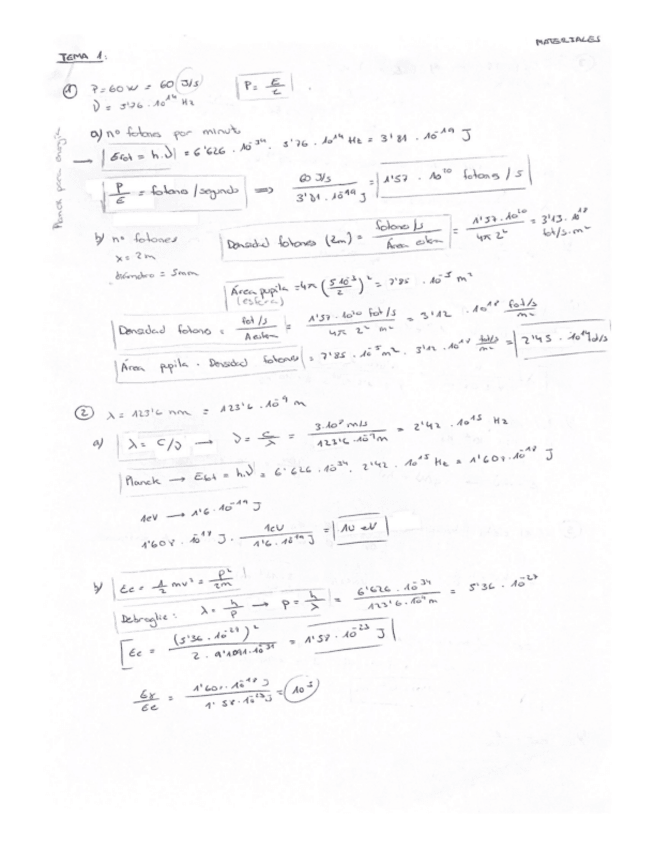 MATERIALES
TEMA 1:
① P = 60 W = 60 J/s   P = E/t
ν = 5'76 · 10^14 Hz
a) nº fotones por minuto
Planck para energía
→ Efot = h·ν = 6'626 · 10^-34 · 5'76 · 10^14 Hz = 3'81 · 10^-19 J
P/E = fotones/segundo ⟹ 60 J/s / 3'81 · 10^-19 J = 1'57 · 10^20 fotones/s
b) nº fotones
x = 2m
diámetro = 5mm
Densidad fotones (2m) = fotones/s / Área esfera = 1'57 · 10^20 / 4π 2² = 3'13 · 10^18 fot/s·m²
Área pupila = 4π (5·10^-3 / 2)² = 7'85 · 10^-5 m²
(esfera)
Densidad fotones = fot/s / A esfera = 1'57 · 10^20 fot/s / 4π 2² m² = 3'12 · 10^18 fot/s / m²
Área pupila · Densidad fotones = 7'85 · 10^-5 m² · 3'12 · 10^18 fot/s / m² = 2'45 · 10^14
② λ = 123'6 nm = 123'6 · 10^-9 m
a) λ = c/ν → ν = c/λ = 3·10^8 m/s / 123'6 · 10^-9 m = 2'42 · 10^15 Hz
Planck → Efot = h·ν = 6'626 · 10^-34 · 2'42 · 10^15 Hz = 1'608 · 10^-18 J
1eV → 1'6 · 10^-19 J
1'608 · 10^-18 J · 1eV / 1'6 · 10^-19 J = 10 eV
b) Ec = 1/2 mv² = p²/2m
Debroglie: λ = h/p → p = h/λ = 6'626 · 10^-34 / 123'6 · 10^-9 m = 5'36 · 10^-27
Ec = (5'36 · 10^-27)² / 2 · 9'1091 · 10^-31 = 1'58 · 10^-23 J
Eγ/Ee = 1'608 · 10^-18 J / 1'58 · 10^-23 J = 10^5